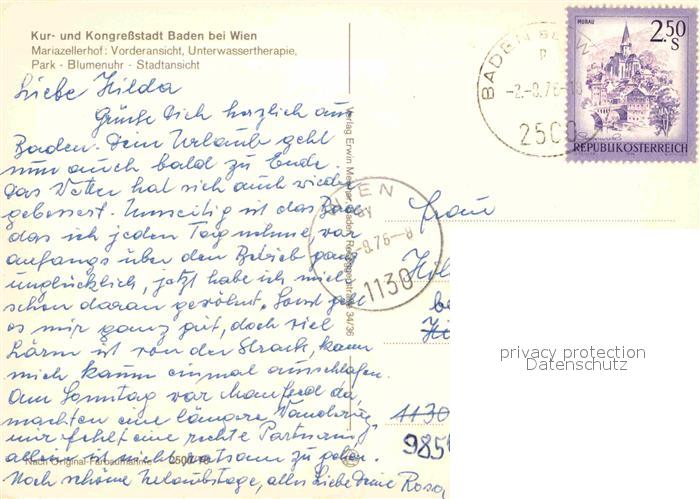 Kur- und Kongreßstadt Baden bei Wien
Mariazellerhof: Vorderansicht, Unterwassertherapie,
Park - Blumenuhr - Stadtansicht
Liebe Hilda
Grüße Dich herzlich aus
Baden. Dein Urlaub geht
nun auch bald zu Ende.
das Wetter hat sich auch wieder
gebessert. Umseitig ist das Bad
das ich jeden Tag nehme, war
anfangs über den Betrieb ganz
unglücklich, jetzt habe ich mich
schon daran gewöhnt. Sonst geht
es mir ganz gut, doch viel
Lärm ist von der Straße, kann
mich kaum einmal ausschlafen.
Am Sonntag war Manfred da,
machten eine längere Wanderung
mir fehlt eine rechte Partnerin,
allein ist nicht ratsam zu gehen.
Noch schöne Urlaubstage, alles Liebe Deine Rosa
Nach Original-Farbaufnahme 2500/76
Verlag Erwin
34/36
BADEN BEI WIEN
P
-2.-8.76-18
2500
MURAU
2.50
S
REPUBLIK ÖSTERREICH
WIEN
-8.76-8
1130
Frau
Hil
be
1130
985
privacy protection
Datenschutz